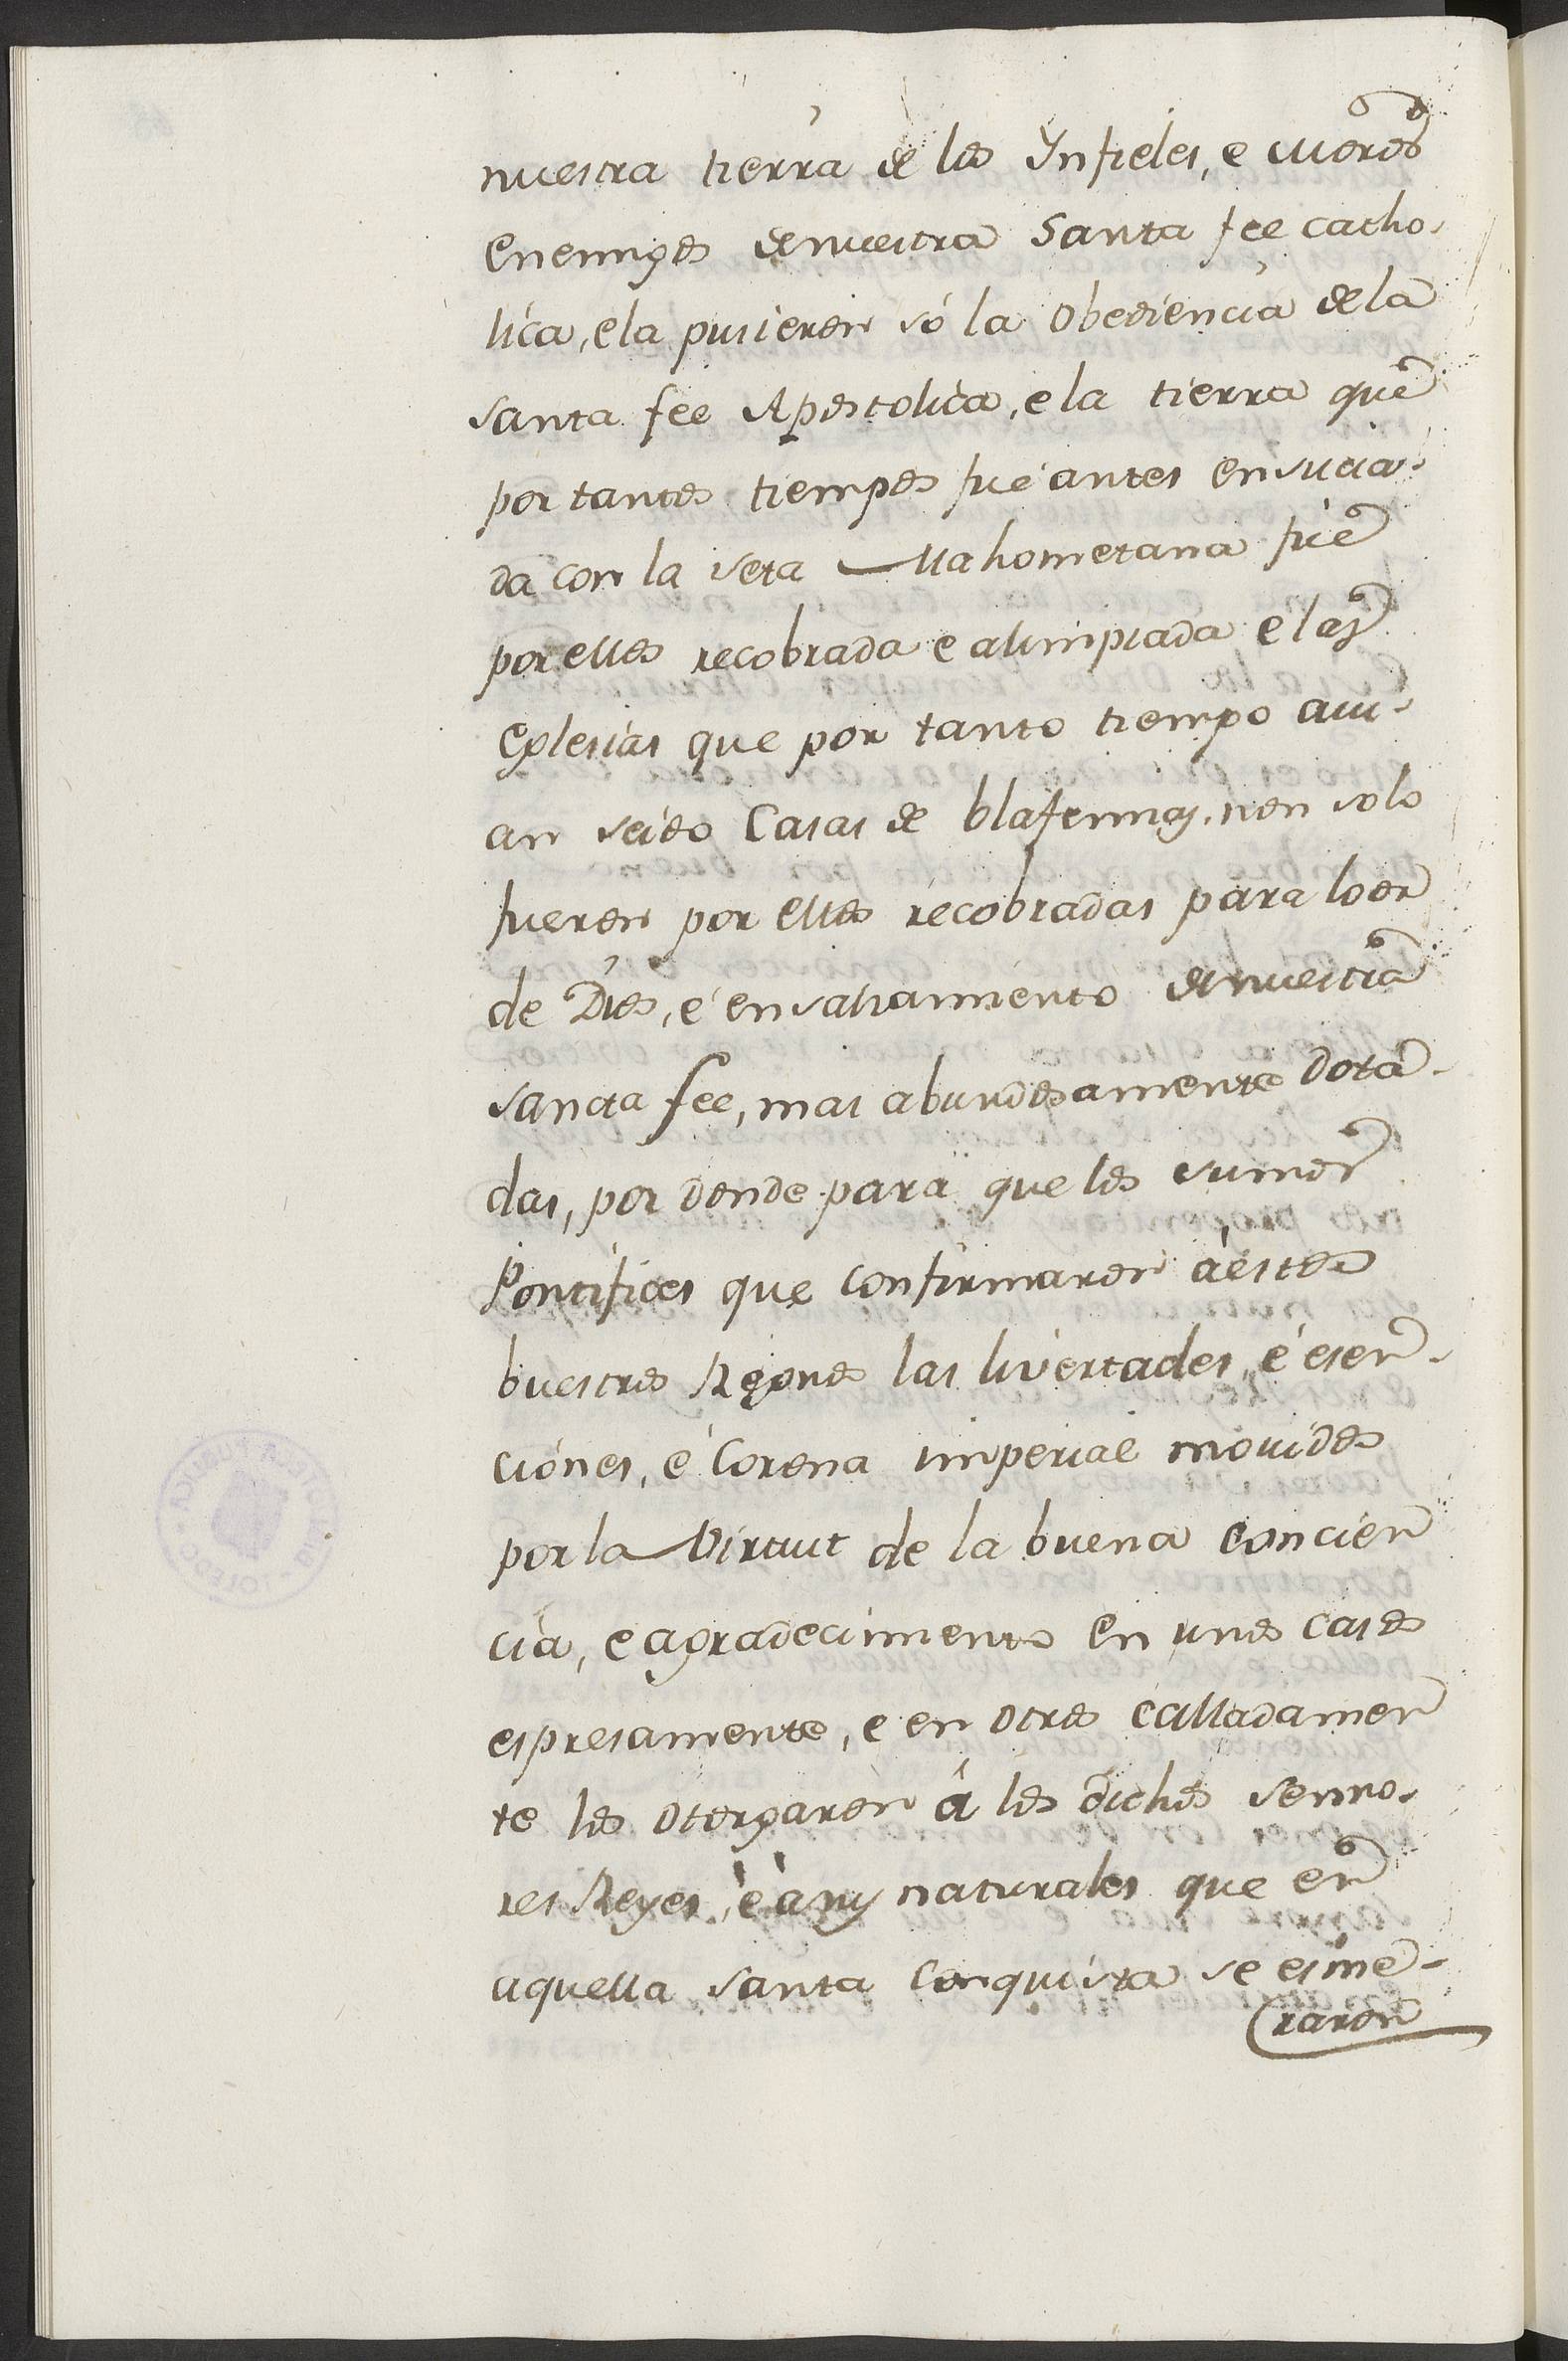 nuestra tierra de los Ynfieles, e moros
enemigos de nuestra Santa fee catho-
lica, e la pusieron só la Obediencia de la
santa fee Apostolica, e la tierra que
por tantos tiempos fué antes ensucia-
da con la seta Mahometana fue
por ellos recobrada e alimpiada e las
Eglesias que por tanto tiempo avi-
an seido Casas de blafemias, non solo
fueron por ellos recobradas para loor
de Dios, é ensalzamiento de nuestra
sancta fee, mas abundosamente dota-
das, por donde para que los sumos
Pontifices que confirmaron á estos
buestros Regonos las livertades, é esen-
ciones, é Corona imperial movidos
por la Virtut de la buena concien
cia, e agradecimento en unos casos
espresamente, e en otros calladamen
te los otorgaron á los dichos senno-
res Reyes, é á my naturales que en
aquella santa conquista se esme-
raron
BIBLIOTECA PUBLICA DE TOLEDO